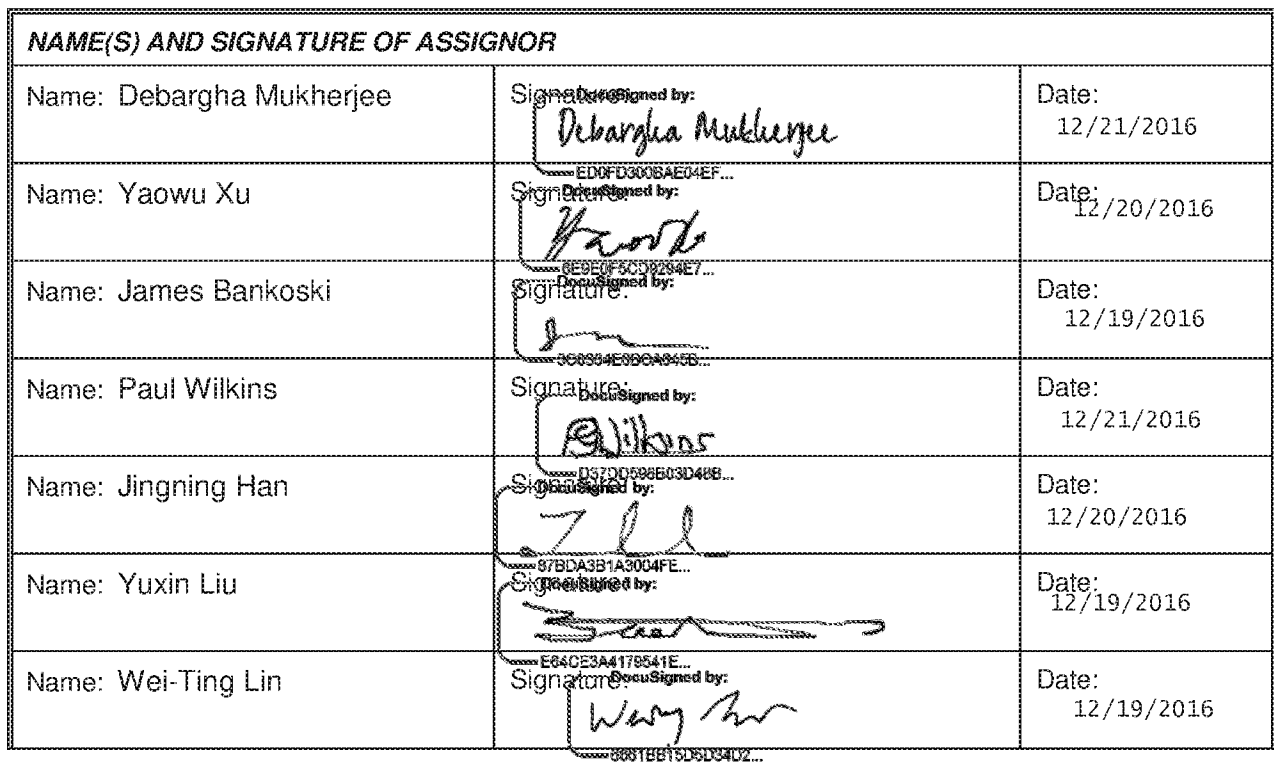 NAME(S) AND SIGNATURE OF ASSIGNOR
Name: Debargha Mukherjee
Signature:
DocuSigned by:
Debargha Mukherjee
ED0FD300BAE04EF...
Date:
12/21/2016
Name: Yaowu Xu
Signature:
DocuSigned by:
6E9E0F5CD9294E7...
Date:
12/20/2016
Name: James Bankoski
Signature:
DocuSigned by:
Date:
12/19/2016
Name: Paul Wilkins
Signature:
DocuSigned by:
PWilkins
D37DD598B03D48B...
Date:
12/21/2016
Name: Jingning Han
Signature:
DocuSigned by:
87BDA3B1A3004FE...
Date:
12/20/2016
Name: Yuxin Liu
Signature:
DocuSigned by:
E64CE3A4179541E...
Date:
12/19/2016
Name: Wei-Ting Lin
Signature:
DocuSigned by:
6661BB15D5D34D2...
Date:
12/19/2016